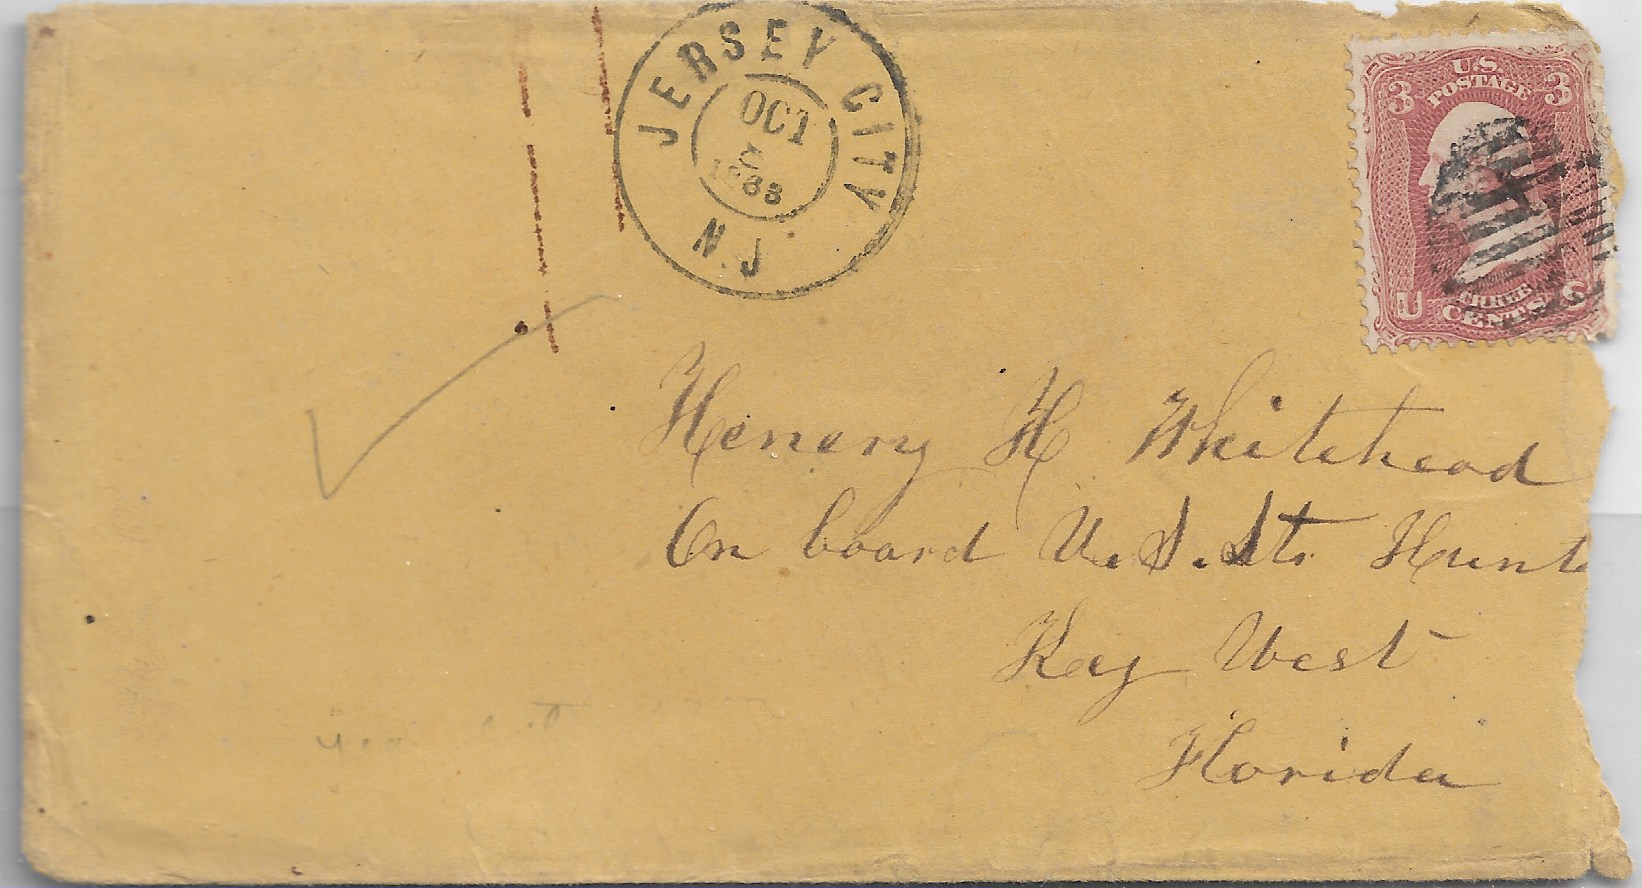 JERSEY CITY
OCT
N.J
U.S.
POSTAGE
3 3
U
THREE
CENTS
Henery H Whitehead
On board U.S. Str Hunt
Key West
Florida